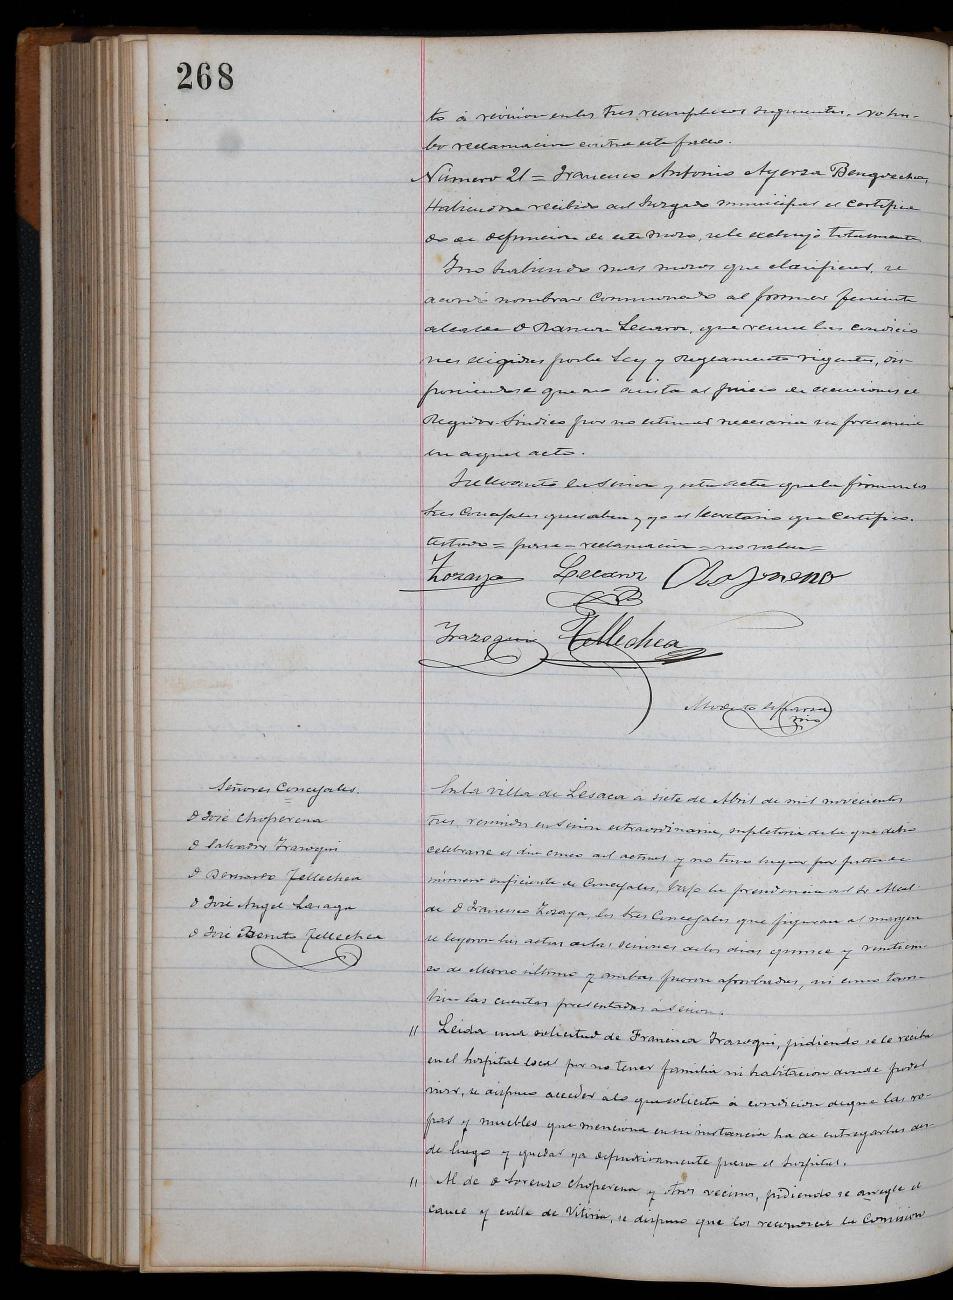 268
to á revision en los tres reemplazos siguientes. No hu-
bo reclamacion contra este fallo.
Número 21 = Francisco Antonio Ayerza Bengoechea,
Habiendose recibido del Juzgado municipal el certifica
do de defuncion de este mozo, se le excluyó totalmente
Y no habiendo mas mozos que clasificar, se
acordó nombrar Comisionado al primer Teniente
alcalde D Ramon Lecaroz, que reune las condicio
nes exigidas por la Ley y Reglamento vigentes, dis-
poniendose que no asista al juicio de exenciones el
Regidor Sindico por no estimar necesaria su presencia
en aquel acto.
Se levantó la sesion y esta acta que la firman los
tres Concejales que saben y yo el Secretario que certifico.
testado = = reclamacion = no valen =
Zozaya Lecaroz
Irazoqui Tellechea
Modesto Esparza
Señores Concejales.
D José Choperena
D Salvador Irazoqui
D Bernardo Tellechea
D José Angel Lasaga
D José Benito Tellechea
En la villa de Lesaca a siete de Abril de mil novecientos
tres, reunidos en sesion extraordinaria, supletoria de la que debió
celebrarse el dia cinco del actual y no tuvo lugar por falta de
número suficiente de Concejales, bajo la presidencia del Sr Alcal-
de D Francisco Zozaya, los tres Concejales que figuran al margen
se leyeron las actas de las sesiones de los dias quince y veinticin-
co de Marzo último y ambas fueron aprobadas, asi como tam-
bien las cuentas presentadas á sesion.
" Leida una solicitud de Francisca Irazoqui, pidiendo se le reciba
en el hospital local por no tener familia ni habitacion donde poder
vivir, se dispuso acceder a lo que solicita á condicion de que las ro-
pas y muebles que menciona en su instancia ha de entregarlas des-
de luego y quedar ya definitivamente para el hospital.
" Al de D Lorenzo Choperena y otros vecinos, pidiendo se arregle el
cauce y calle de Vitoria, se dispuso que los reconozca la Comision